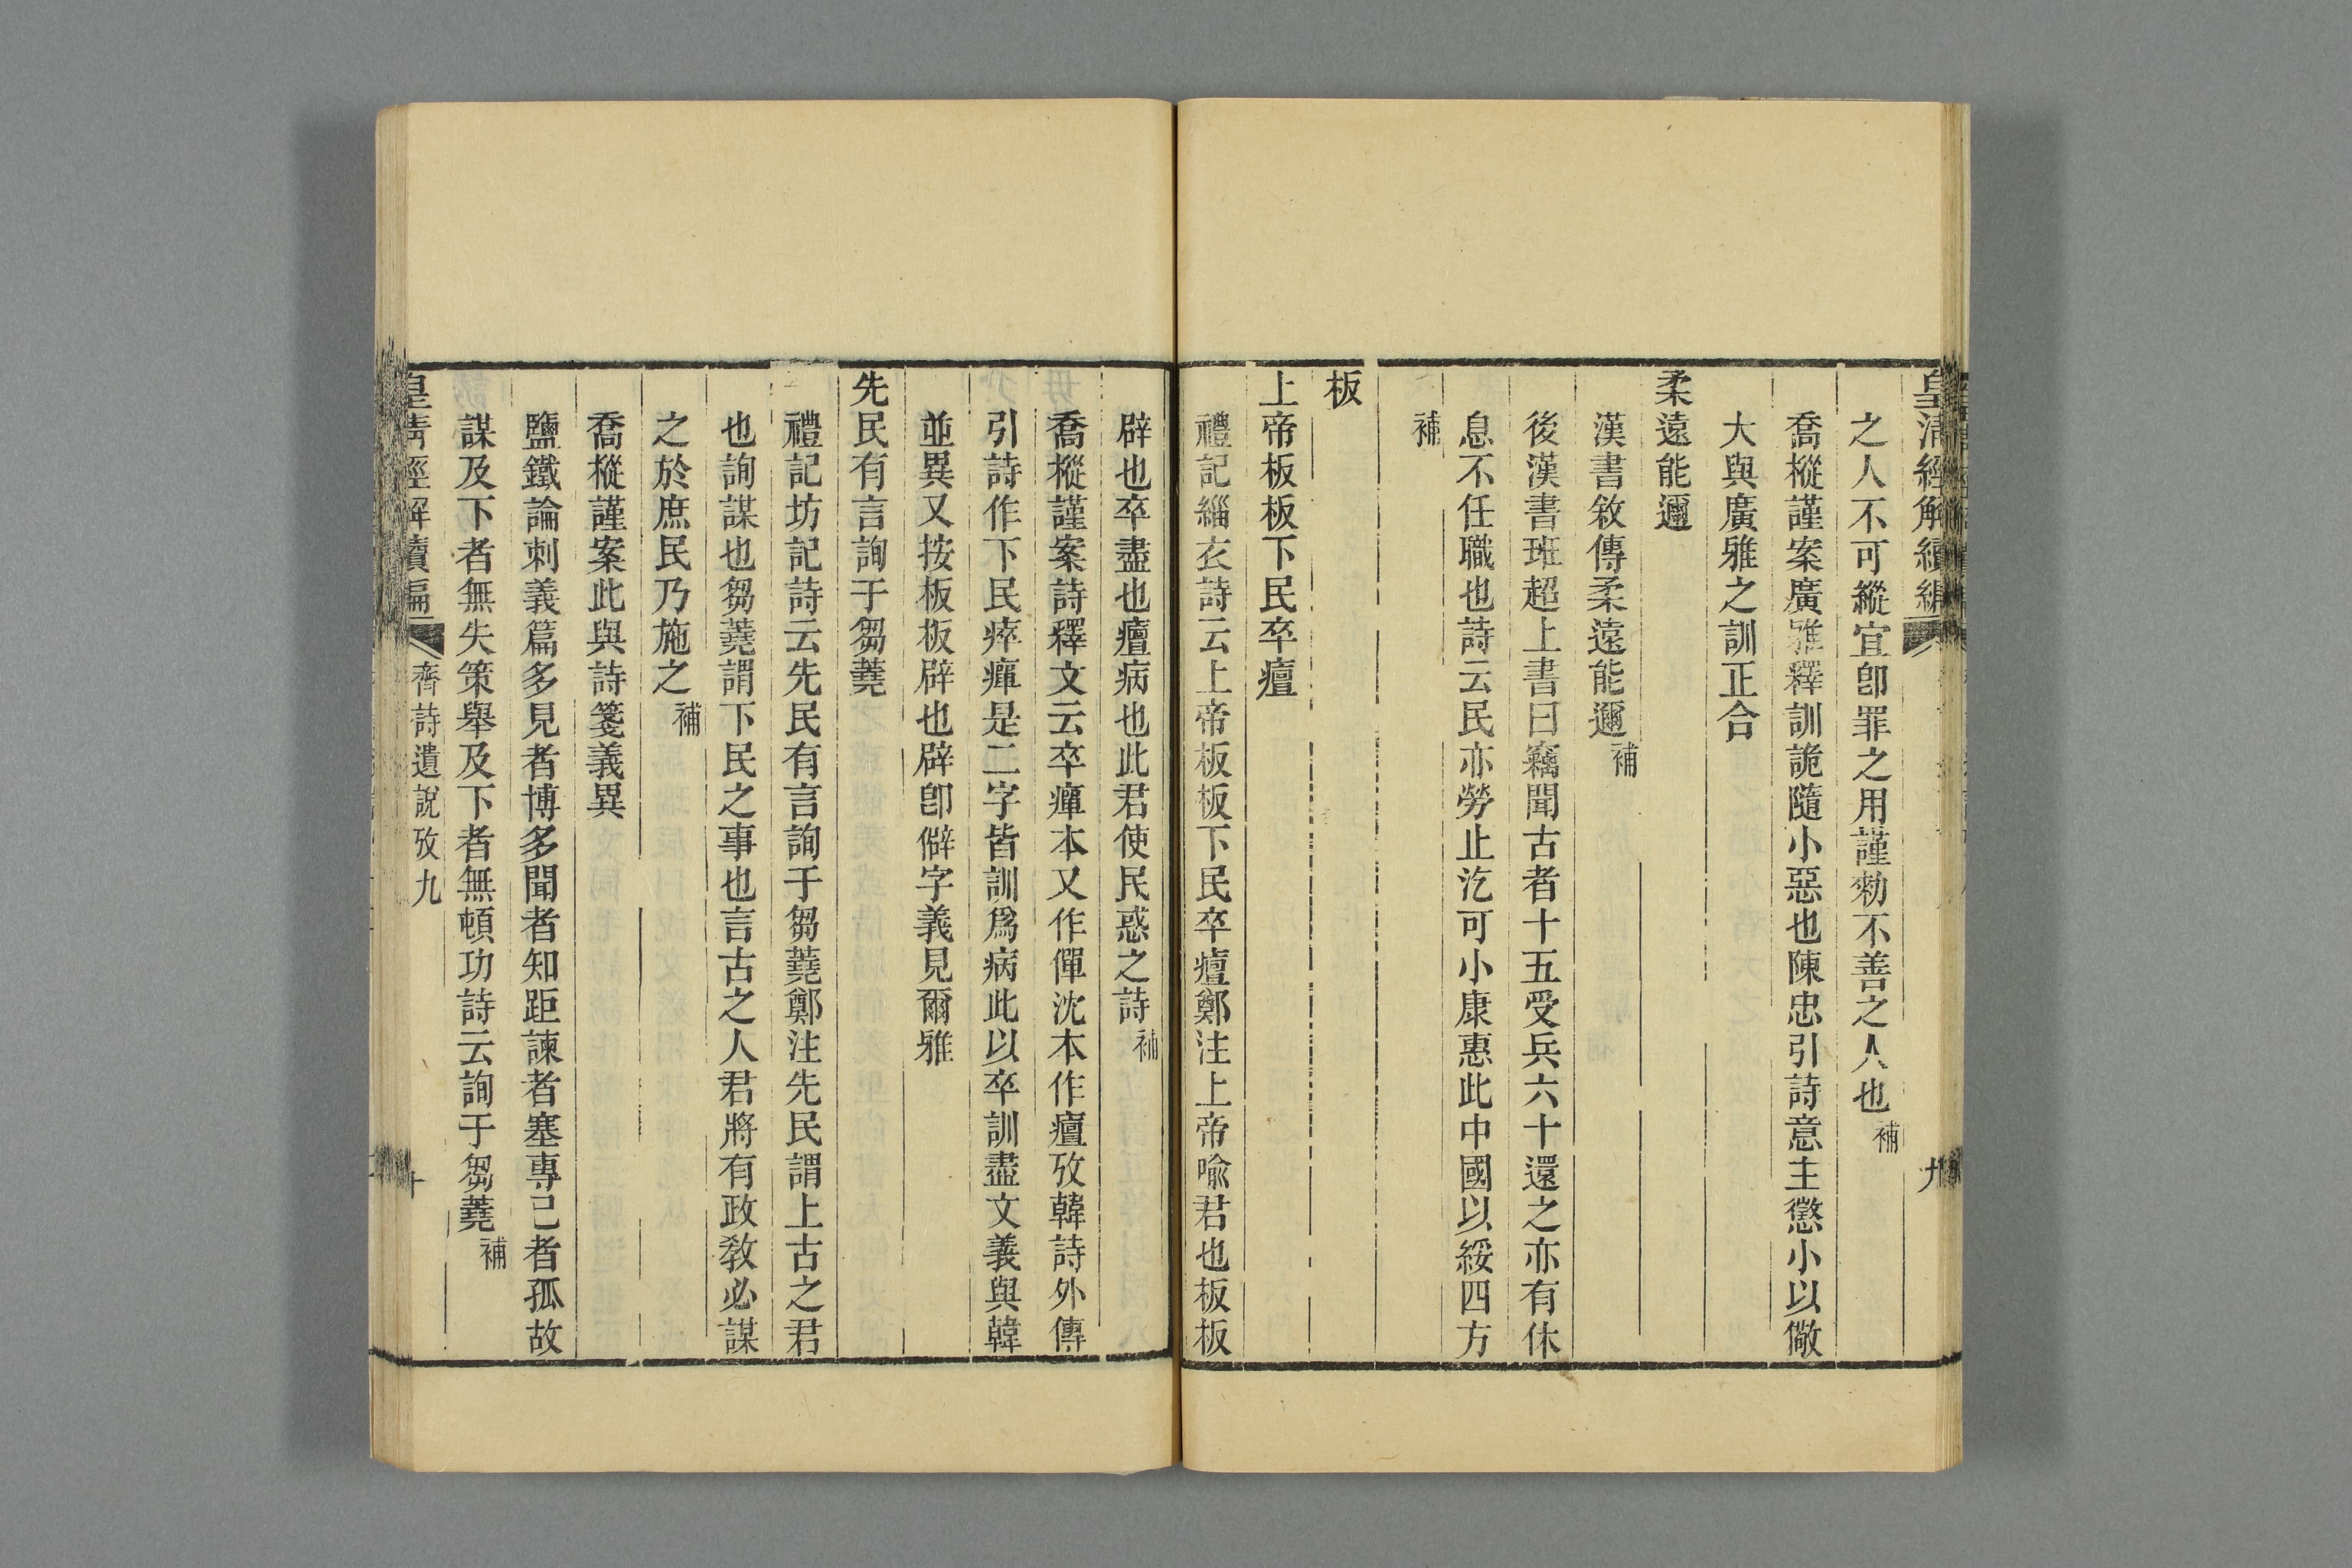 皇清經解續編 九
之人不可縱宜卽罪之用謹勑不善之人也補
喬樅謹案廣雅釋訓詭隨小惡也陳忠引詩意主懲小以儆
大與廣雅之訓正合
柔遠能邇
漢書敘傳柔遠能邇補
後漢書班超上書曰竊聞古者十五受兵六十還之亦有休
息不任職也詩云民亦勞止汔可小康惠此中國以綏四方
補
板
上帝板板下民卒癉
禮記緇衣詩云上帝板板下民卒癉鄭注上帝喩君也板板
辟也卒盡也癉病也此君使民惑之詩補
喬樅謹案詩釋文云卒癉本又作僤沈本作癉攷韓詩外傳
引詩作下民瘁瘅是二字皆訓爲病此以卒訓盡文義與韓
並異又按板板辟也辟卽僻字義見爾雅
先民有言詢于芻蕘
禮記坊記詩云先民有言詢于芻蕘鄭注先民謂上古之君
也詢謀也芻蕘謂下民之事也言古之人君將有政敎必謀
之於庶民乃施之補
喬樅謹案此與詩箋義異
鹽鐵論刺義篇多見者博多聞者知距諫者塞專己者孤故
謀及下者無失策舉及下者無頓功詩云詢于芻蕘補
皇清經解續編 齊詩遺說攷九 十